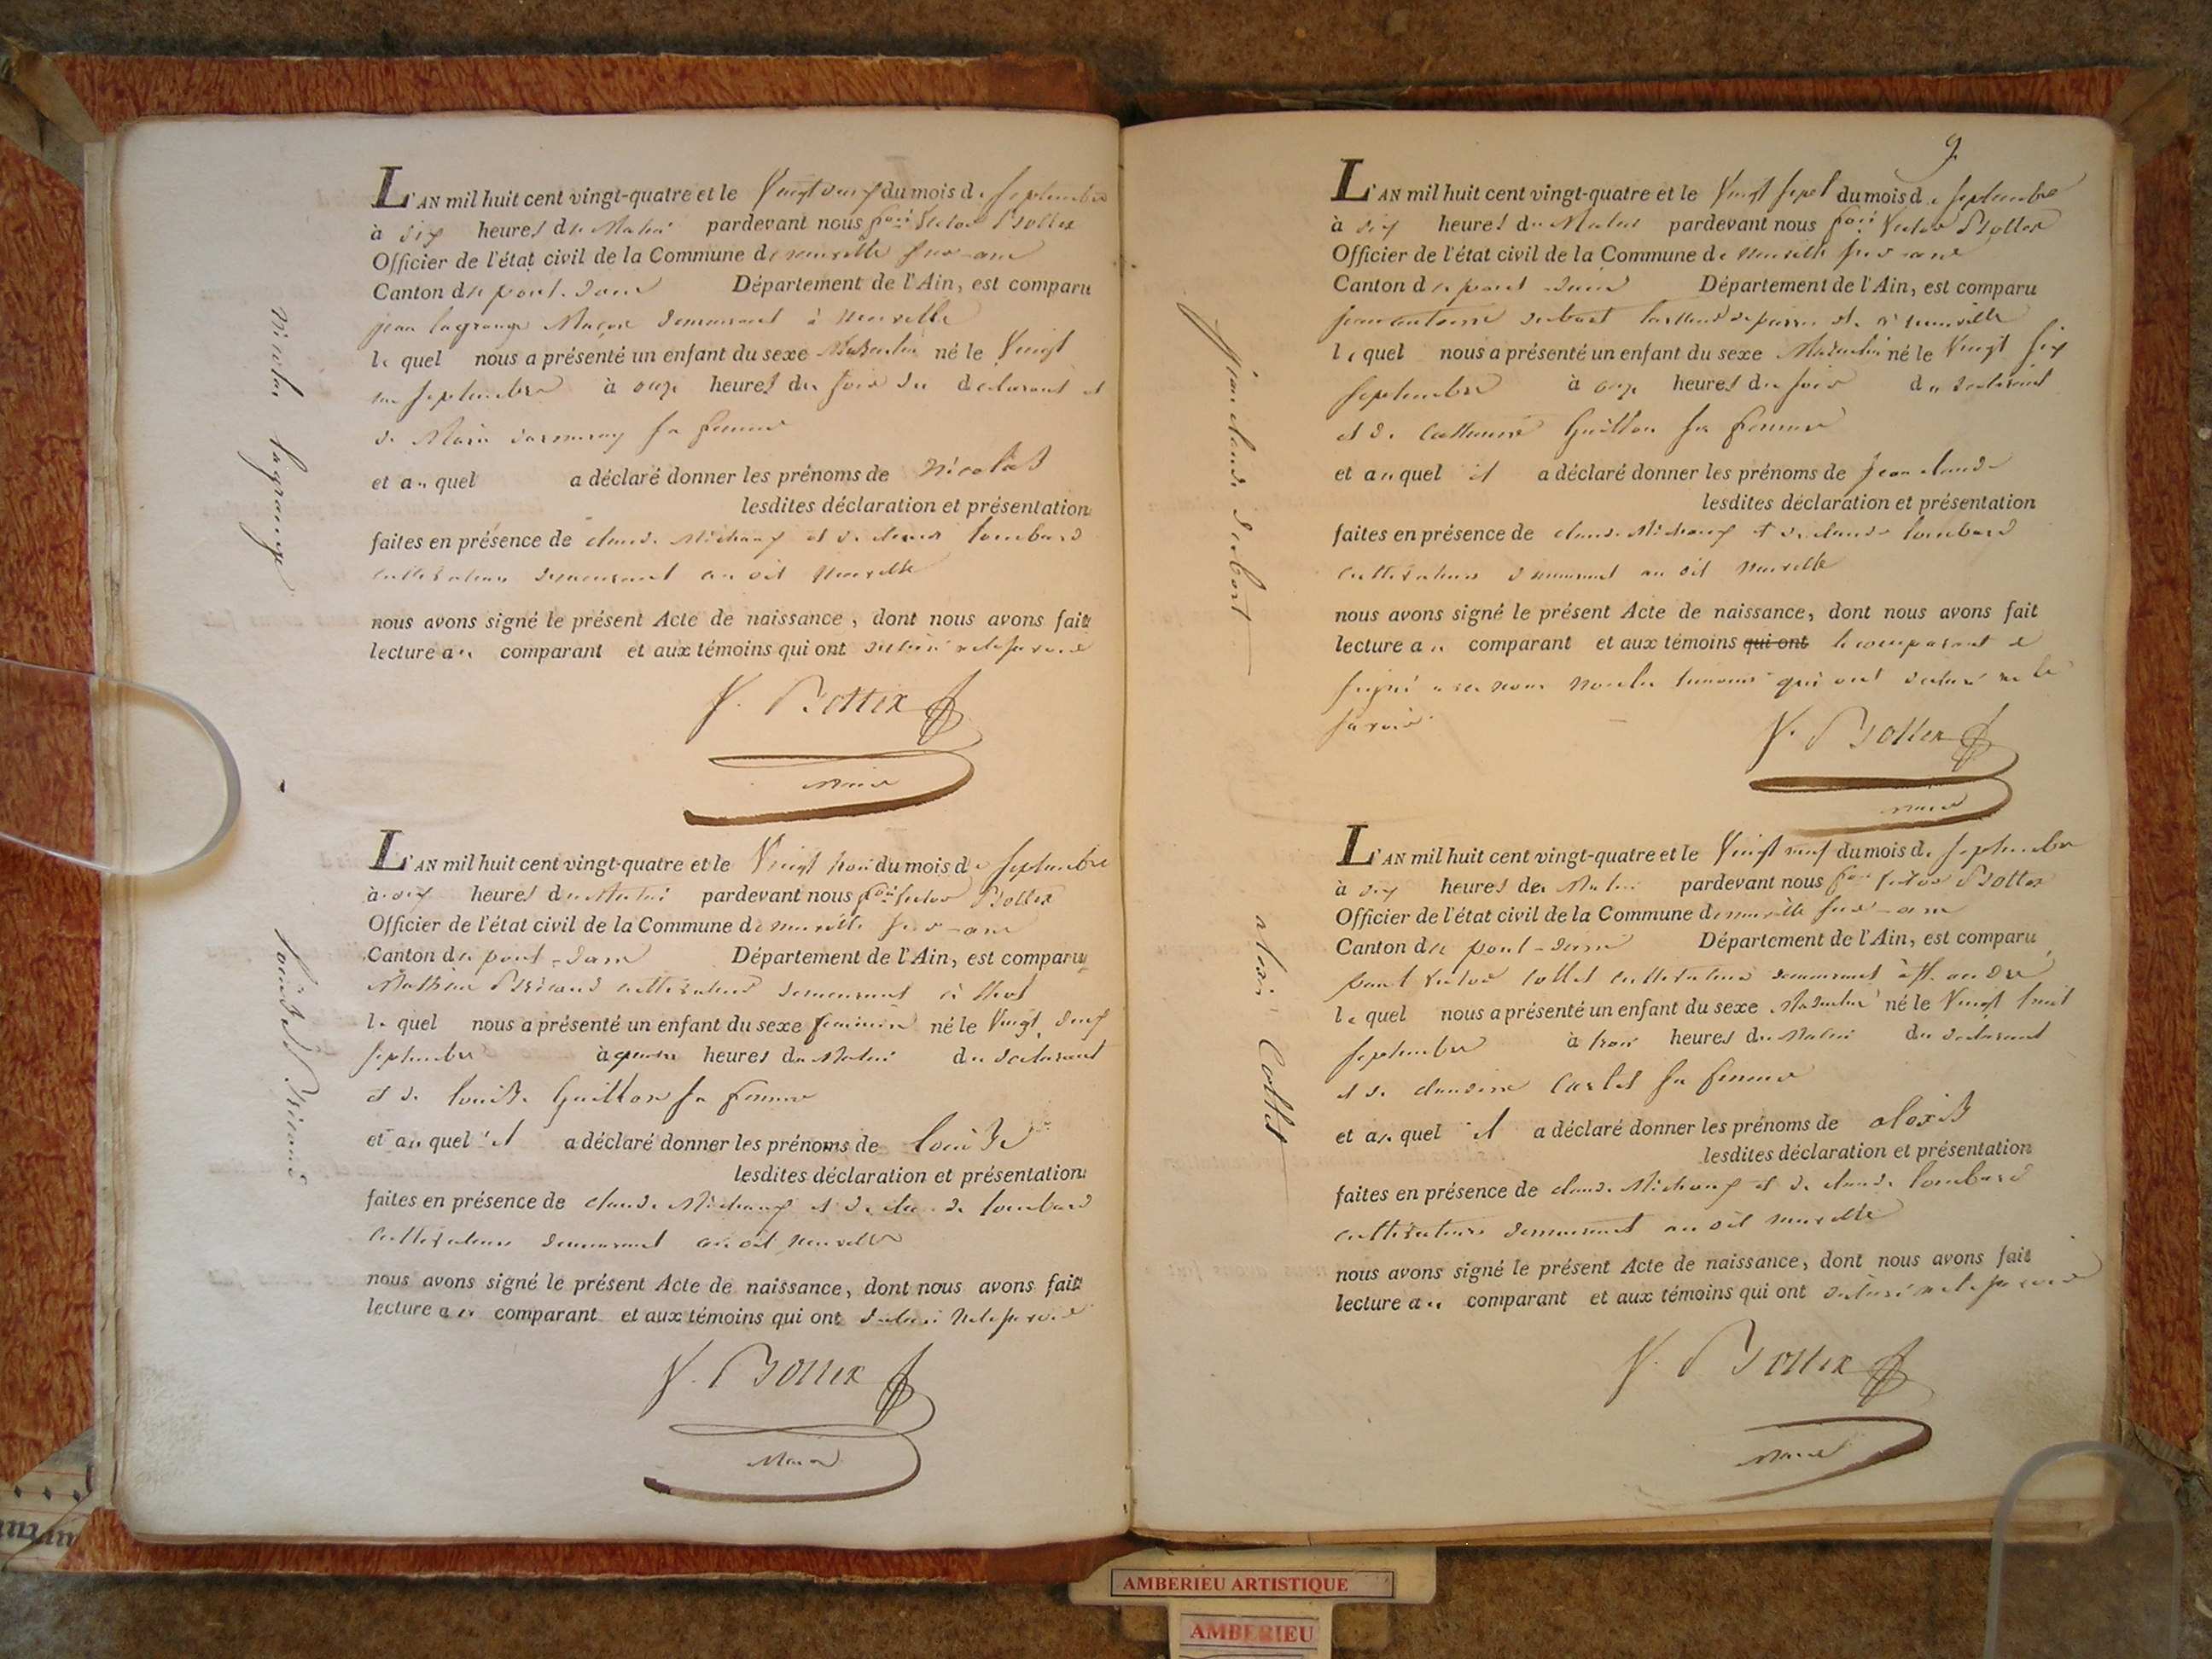 L'AN mil huit cent vingt-quatre et le Vingt deux du mois de septembre
à dix heures du Matin pardevant nous fois Victor Bottex
Officier de l'état civil de la Commune de neuville sur ain
Canton de pont-dain Département de l'Ain, est comparu
jean lagrange Maçon demeurant à neuville
le quel nous a présenté un enfant du sexe Masculin né le Vingt
un septembre à onze heures du soir du declarant et
de Marie sa femme
et au quel a déclaré donner les prénoms de nicolas
lesdites déclaration et présentation
faites en présence de claude Michaux et de claude lombard
cultivateurs demeurant au dit neuville
nous avons signé le présent Acte de naissance, dont nous avons fait
lecture au comparant et aux témoins qui ont déclaré ne le savoir
V. Bottex
Maire
nicolas lagrange
L'AN mil huit cent vingt-quatre et le Vingt trois du mois de septembre
à dix heures du Matin pardevant nous fois Victor Bottex
Officier de l'état civil de la Commune de neuville sur-ain
Canton de pont-dain Département de l'Ain, est comparu
Mathieu cultivateur demeurant à
le quel nous a présenté un enfant du sexe feminin né le Vingt deux
septembre à quatre heures du Matin du declarant
et de louise Guillon sa femme
et au quel il a déclaré donner les prénoms de louise
lesdites déclaration et présentation
faites en présence de claude Michaux et de claude lombard
cultivateurs demeurant au dit neuville
nous avons signé le présent Acte de naissance, dont nous avons fait
lecture au comparant et aux témoins qui ont déclaré ne le savoir
V. Bottex
Maire
louise
9
L'AN mil huit cent vingt-quatre et le Vingt sept du mois de septembre
à dix heures du Matin pardevant nous fois Victor Bottex
Officier de l'état civil de la Commune de neuville sur ain
Canton de pont-dain Département de l'Ain, est comparu
jean antoine dubort à neuville
le quel nous a présenté un enfant du sexe Masculin né le Vingt six
septembre à onze heures du soir du declarant
et de catherine Guillon sa femme
et au quel il a déclaré donner les prénoms de jean claude
lesdites déclaration et présentation
faites en présence de claude Michaux et de claude lombard
cultivateurs demeurant au dit neuville
nous avons signé le présent Acte de naissance, dont nous avons fait
lecture au comparant et aux témoins qui ont le comparant a
signé avec nous non les temoins qui ont declaré ne le
savoir
V. Bottex
maire
jean claude dubort
L'AN mil huit cent vingt-quatre et le Vingt neuf du mois de septembre
à dix heures du Matin pardevant nous fois victor Bottex
Officier de l'état civil de la Commune de neuville sur-ain
Canton de pont-dain Département de l'Ain, est comparu
paul victor collet cultivateur demeurant à st. andré
le quel nous a présenté un enfant du sexe Masculin né le Vingt huit
septembre à trois heures du Matin du declarant
et de claudine Carlet sa femme
et au quel il a déclaré donner les prénoms de alexis
lesdites déclaration et présentation
faites en présence de claude Michaux et de claude lombard
cultivateurs demeurant au dit neuville
nous avons signé le présent Acte de naissance, dont nous avons fait
lecture au comparant et aux témoins qui ont déclaré ne le savoir
V. Bottex
Maire
alexis Collet
AMBERIEU ARTISTIQUE
AMBERIEU